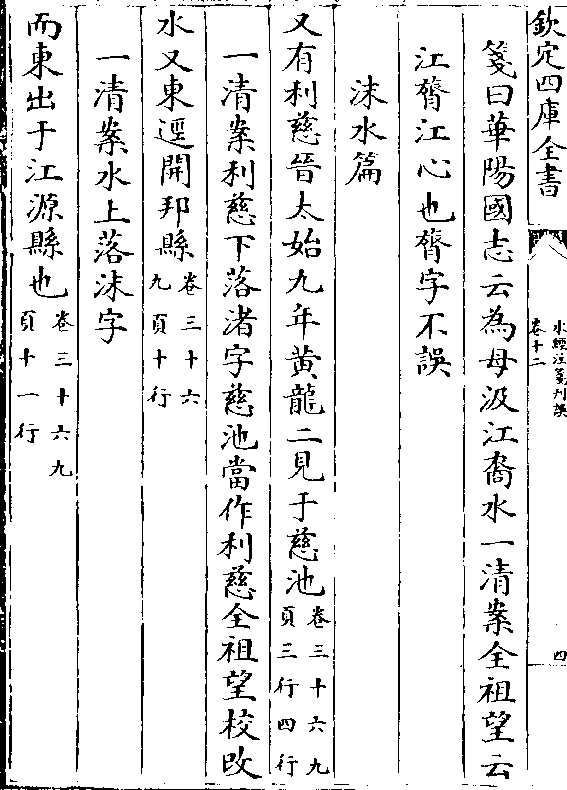 欽定四庫全書
水經注箋刊誤
卷十二
四
箋曰華陽國志云為母汲江裔水一清案全祖望云
江膂江心也膂字不誤
沫水篇
又有利慈晉太始九年黄龍二見于慈池卷三十六九頁三行四行
一清案利慈下落渚字慈池當作利慈全祖望校改
水又東逕開邦縣卷三十六九頁十行
一清案水上落沫字
而東出于江源縣也卷三十六九頁十一行